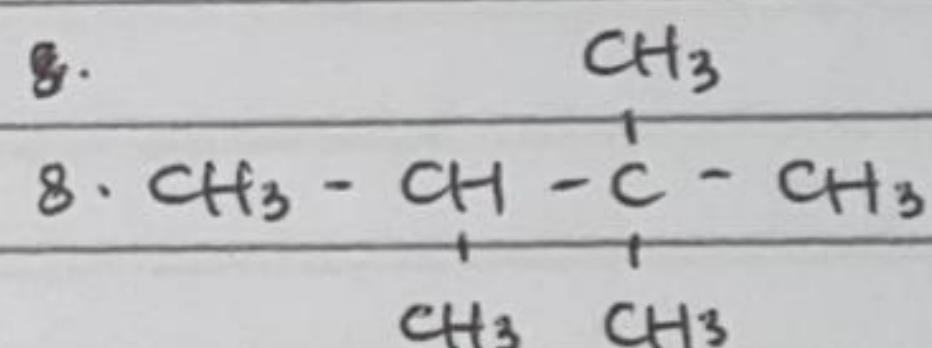 8. CH3
8. CH3 - CH - C - CH3
CH3 CH3